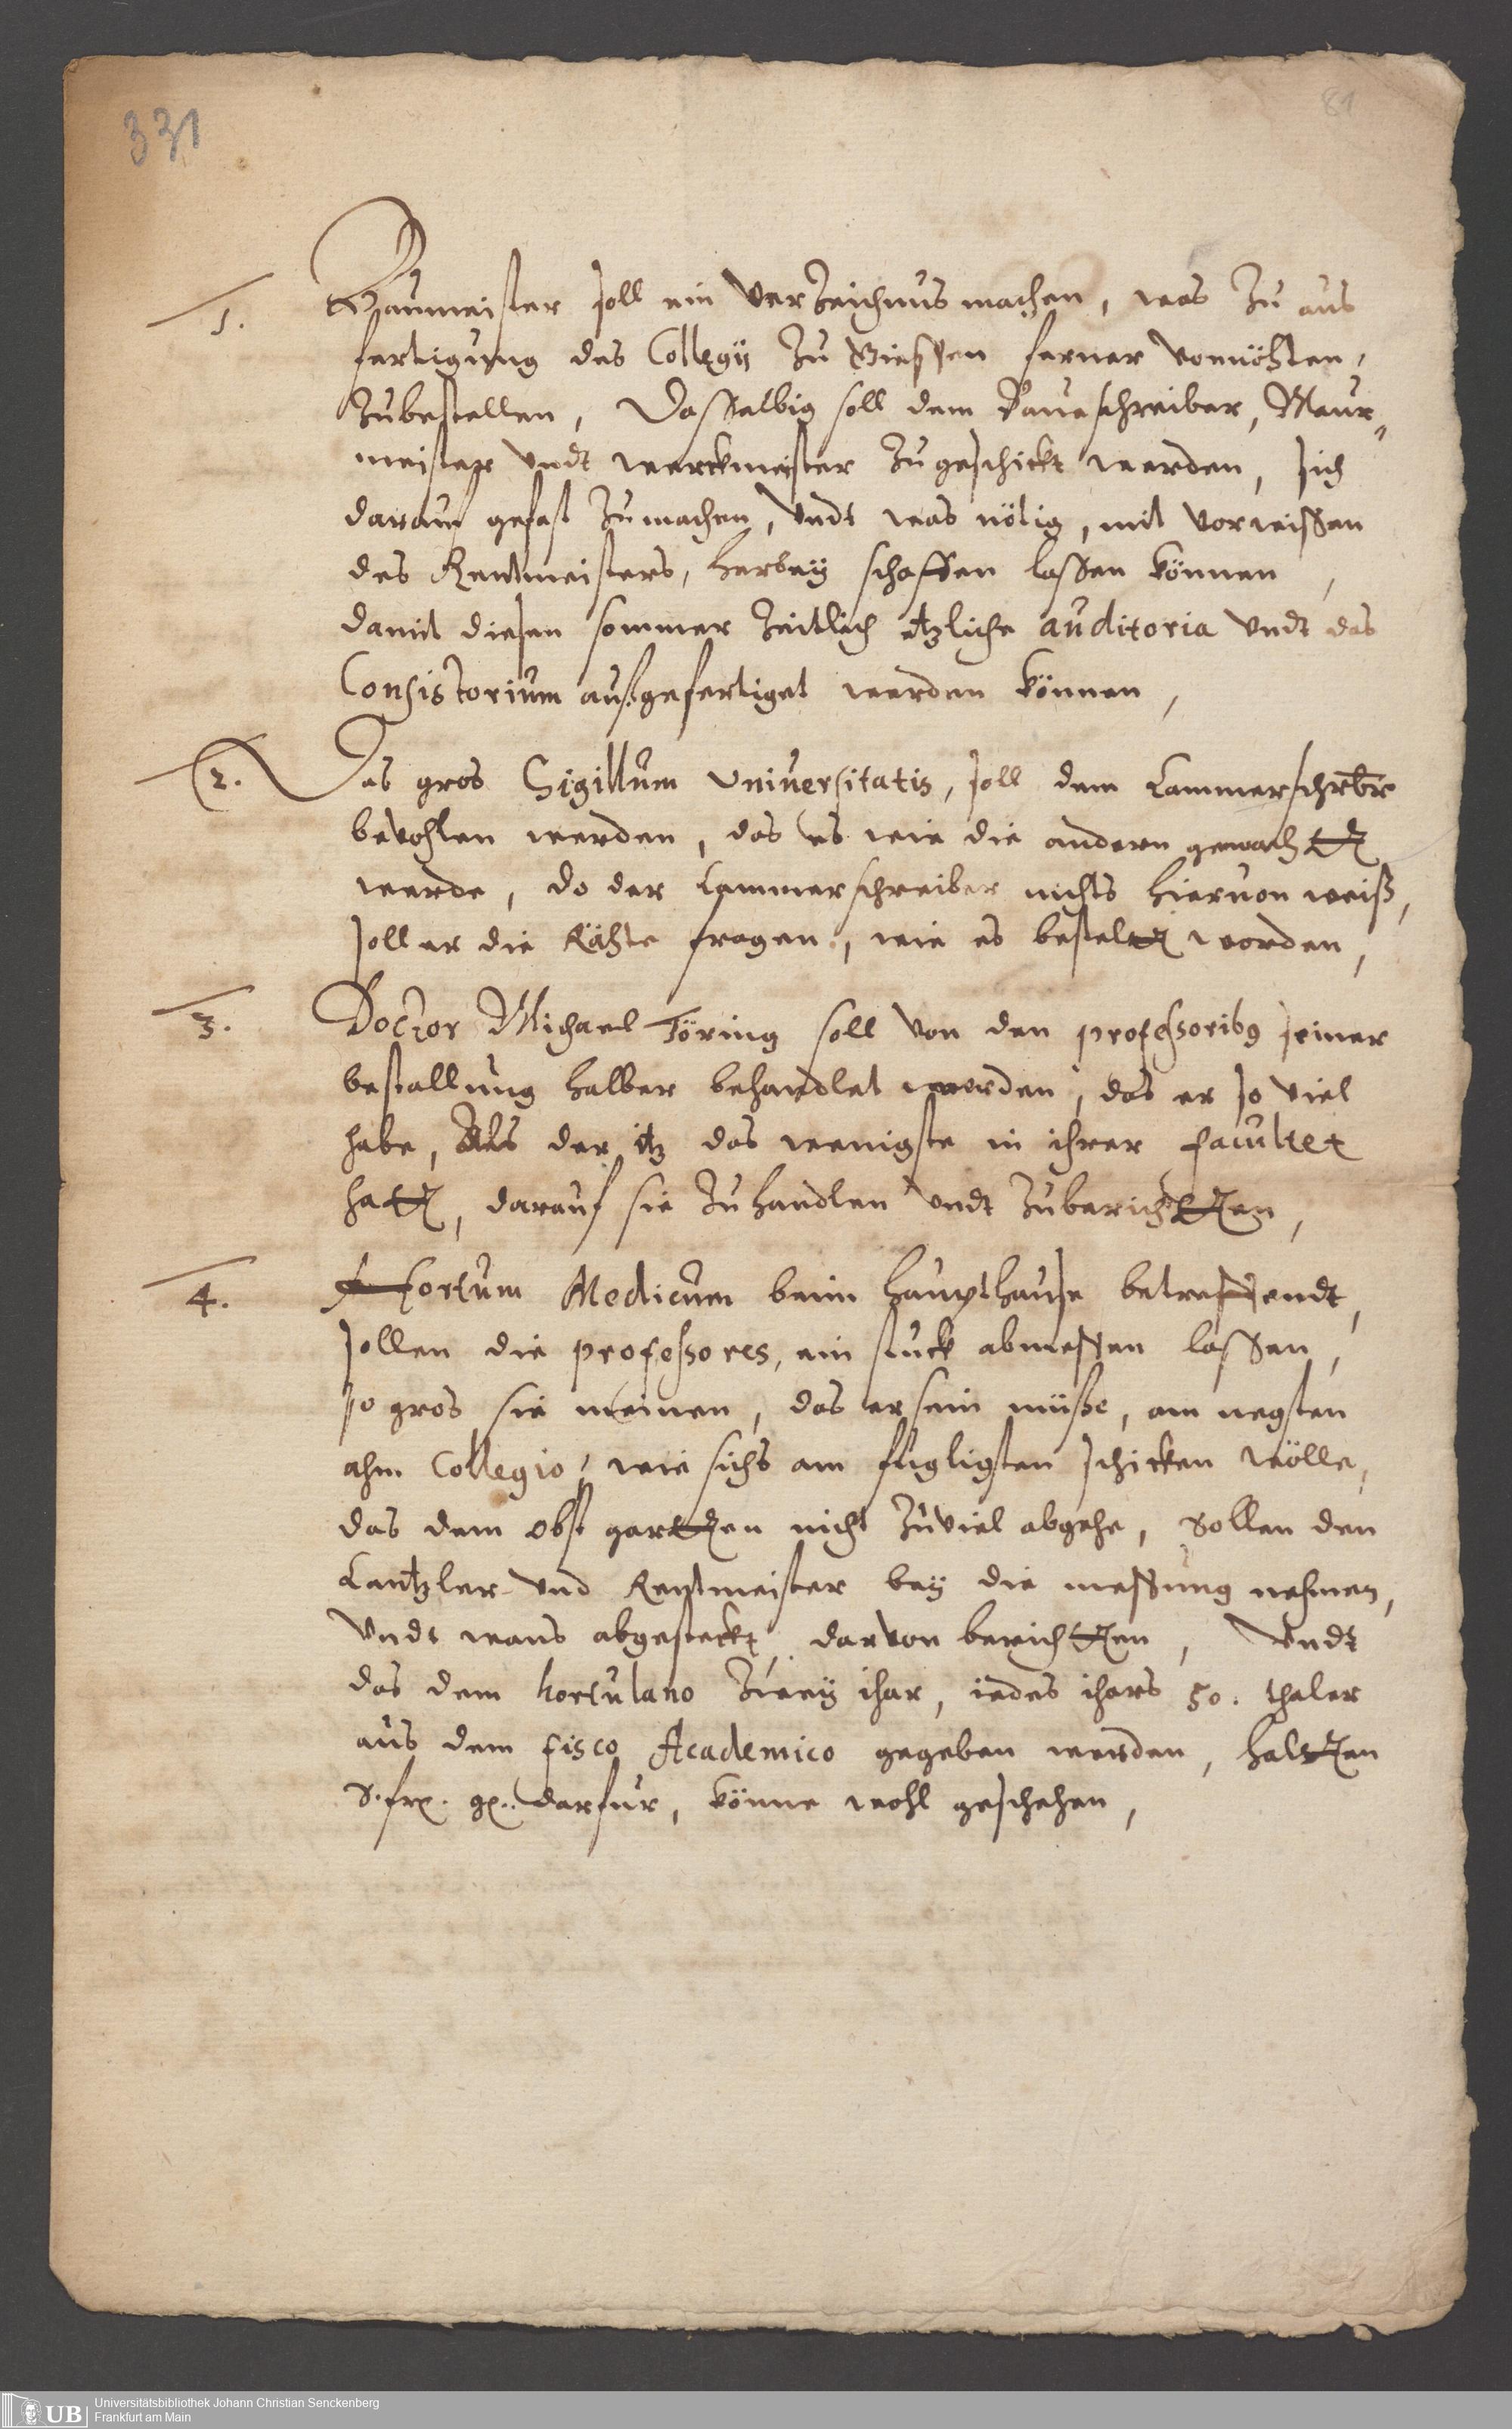 331
81
1.
Baumeister soll ein Verzeichnus machen, was zu aus
fertigung des Collegij zu Giessen ferner vonnöhten,
zubestellen, Dasselbig soll dem Baueschreiber, Maur„
meister vndt werckmeister zugeschickt werden, sich
darauf gefast zumachen, vndt was nötig, mit vorwissen
des Rentmeisters, herbey schaffen lassen können,
damit diesen sommer zeitlich etzliche auditoria vndt das
Consistorium außgefertiget werden können,
2.
Das gros Sigillum Vniuersitatis, soll dem Cammerschrbr
bevohlen werden, das es wie die andern gemacht
werde, do der Cammerschreiber nichts hieruon weiß,
soll er die Rähte fragen, wie es bestelt worden,
3.
Doctor Michael Töring soll von den professoribus seiner
bestallung halber behandlet werden, das er so viel
habe, Als der itz das wenigste in ihrer facultet
hatt, darauf sie zuhandlen vndt zuberichten,
4.
Hortum Medicum beim Haupthause betreffendt,
sollen die professores, ein stuck abmessen lassen,
so gros sie meinen, das er sein müße, am negsten
ahm Collegio, wie sichs am fügligsten schicken wölle,
das dem obst gartten nicht zuviel abgehe, Sollen den
Cantzler vnd Rentmeister bey die messung nehmen,
Vndt wans abgesteckt, darvon berichten, Vndt
das dem hortulano zwey ihar, iedes ihars 50. thaler
aus dem fisco Academico gegeben werden, haltten
S. fr. g. darfur, könne wohl geschehen,
UB
Universitätsbibliothek Johann Christian Senckenberg
Frankfurt am Main